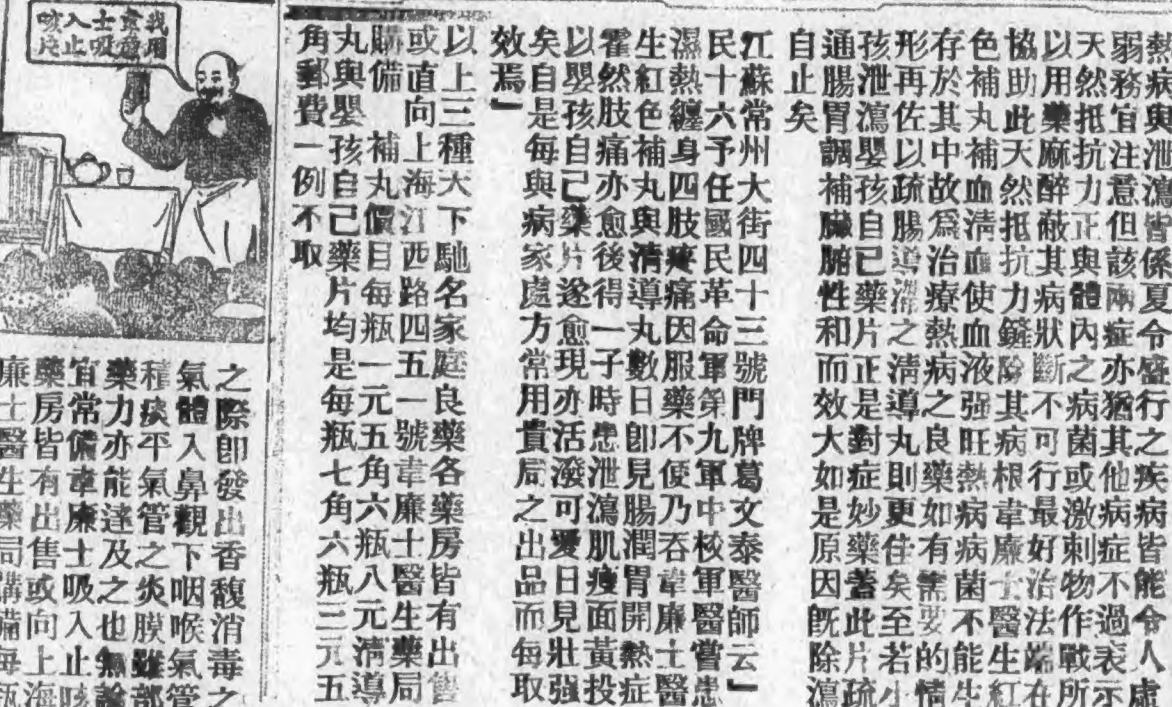 熱病與泄瀉皆係夏令盛行之疾病皆能令人虛
弱務宜注意但該兩症亦猶其他病症不過表示
天然抵抗力正與體內之病菌或激刺物作戰所
以用藥麻醉蔽其病狀斷不可行最好治法端在
協助此天然抵抗力鏟除其病根韋廉士醫生紅
色補丸補血清血使血液强旺熱病病菌不能生
存於其中故爲治療熱病之良藥如有需要的情
形再佐以疏腸導滯之清導丸則更住矣至若小
孩泄瀉嬰孩自己藥片正是對症妙藥蓋此片疏
通腸胃調補臟腑性和而效大如是原因旣除瀉
自止矣
江蘇常州大街四十三號門牌葛文泰醫師云「
民十六予任國民革命軍第九軍中校軍醫嘗患
濕熱纏身四肢痠痛因服藥不便乃吞韋廉士醫
生紅色補丸與清導丸數日卽見腸潤胃開熱症
霍然肢痛亦愈後得一子時患泄瀉肌瘦面黃投
以嬰孩自己藥片遂愈現亦活潑可愛日見壯强
矣自是每與病家處方常用貴局之出品而每取
效焉」
以上三種大下馳名家庭良藥各藥房皆有出售
或直向上海江西路四五一號韋廉士醫生藥局
購備 補丸價目每瓶一元五角六瓶八元清導
丸與嬰孩自己藥片均是每瓶七角六瓶三元五
角郵費一例不取
我用
韋廉
士吸
入止
咳片
之際卽發出香馥消毒之
氣體入鼻觀下咽喉氣管
種痰平氣管之炎膜雖部
藥力亦能遂及之也無論
宜常備韋廉士吸入止咳
藥房皆有出售或向上海
廉士醫生藥局購備每瓶